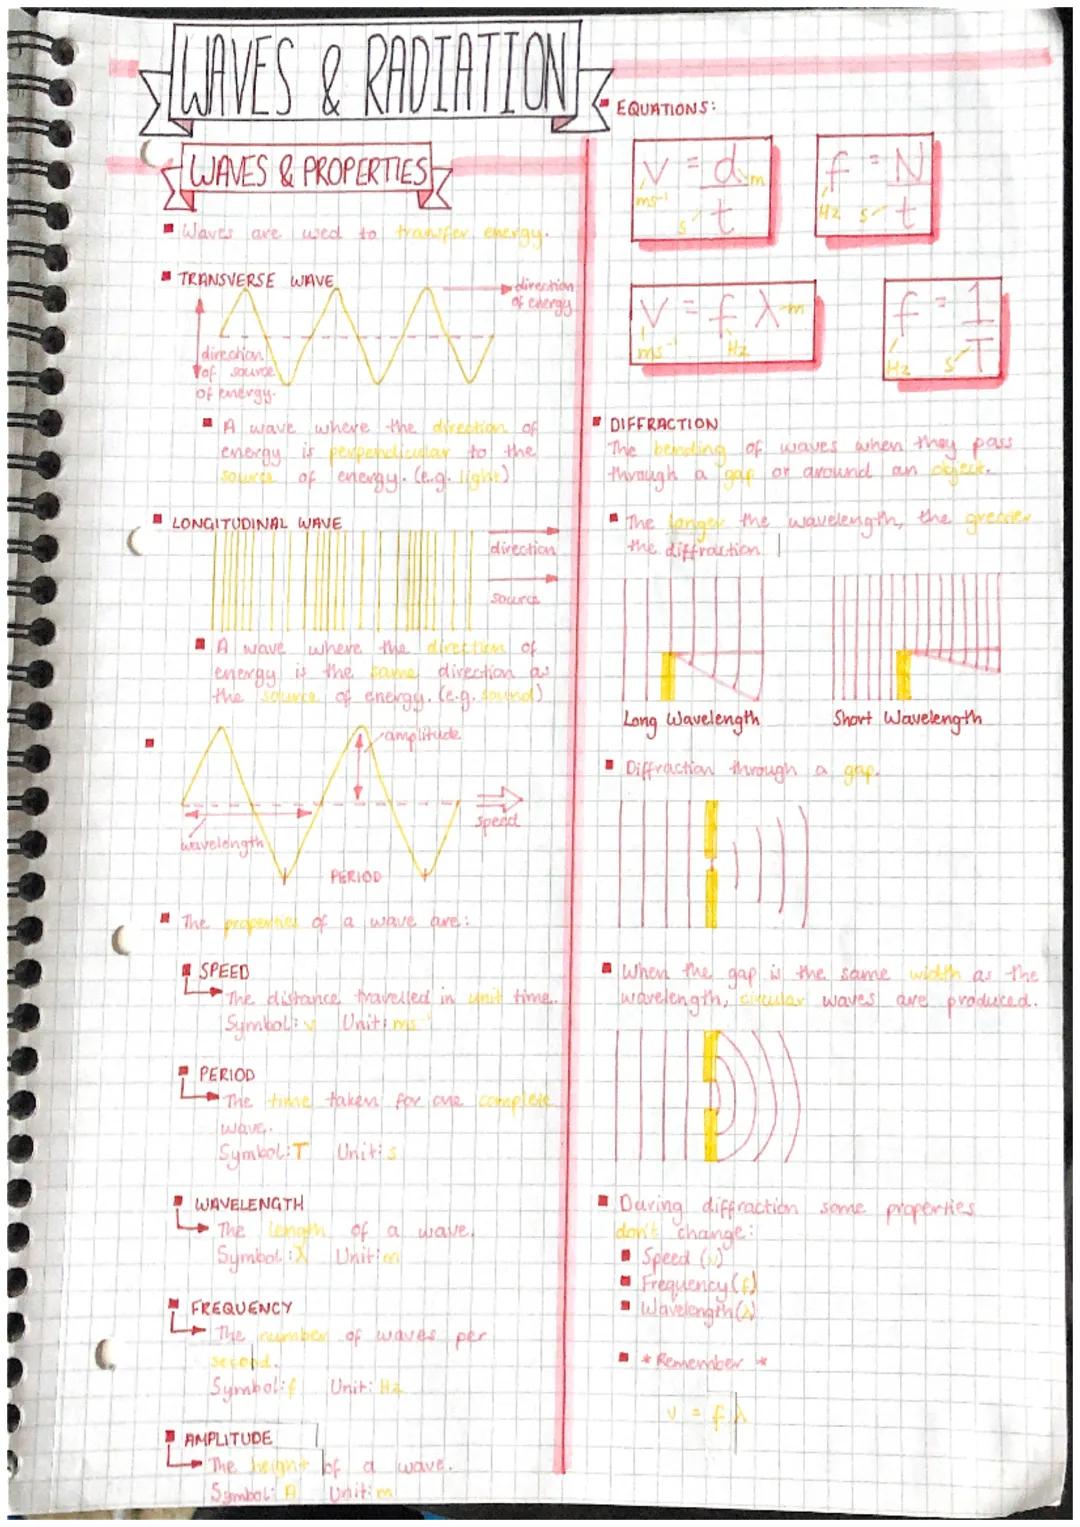 WAVES & RADIATION
WAVES & PROPERTIES
Waves are used to transfer energy.
TRANSVERSE WAVE
direction
of energy
direction
of source
of energy.
A wave where the direction of
energy is perpendicular to the
source of energy. (e.g. light)
LONGITUDINAL WAVE
direction
source
A wave where the direction of
energy is the same direction as
the source of energy. (e.g. sound)
amplitude
wavelength
speed
PERIOD
The properties of a wave are:
SPEED
The distance travelled in unit time.
Symbol: v Unit: ms⁻¹
PERIOD
The time taken for one complete
wave.
Symbol: T Unit: s
WAVELENGTH
The length of a wave.
Symbol: λ Unit: m
FREQUENCY
The number of waves per
second.
Symbol: f Unit: Hz
AMPLITUDE
The height of a wave.
Symbol: A Unit: m
EQUATIONS:
v = d m
ms⁻¹ s t
f = N
Hz s t
v = f λ m
ms⁻¹ Hz
f = 1
Hz s T
DIFFRACTION
The bending of waves when they pass
through a gap or around an object.
The longer the wavelength, the greater
the diffraction.
Long Wavelength
Short Wavelength
Diffraction through a gap.
When the gap is the same width as the
wavelength, circular waves are produced.
During diffraction some properties
don't change:
Speed (v)
Frequency (f)
Wavelength (λ)
* Remember *
v = f λ